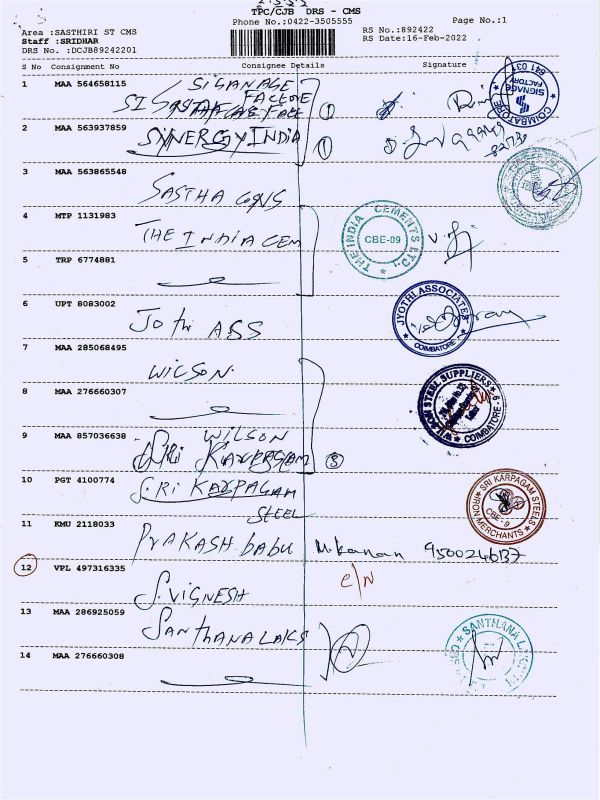 TPC/CJB DRS - CMS
Phone No.:0422-3505555
Page No.:1
Area :SASTHIRI ST CMS
RS No.:892422
Staff :SRIDHAR
RS Date:16-Feb-2022
DRS No. :DCJB89242201
S No Consignment No Consignee Details Signature
1 MAA 564658115 SIGANAGE
FACTORE
1
SIGNAGE FACTORY
COIMBATORE
641 031
2 MAA 563937859 SYNERGY INDIA
1
3 MAA 563865548
SASTHA CONS
4 MTP 1131983
THE INDIA CEM
THE INDIA CEMENTS LTD.
CBE-09
5 TRP 6774881
6 UPT 8083002
JOTHI ASS
JYOTHI ASSOCIATES
COIMBATORE
7 MAA 285068495
WILSON
8 MAA 276660307
WILSON STEEL SUPPLIERS
COIMBATORE - 9
9 MAA 857036638 WILSON
SRI KARPAGAM
3
10 PGT 4100774
SRI KARPAGAM
STEEL
SRI KARPAGAM STEELS
IRON MERCHANTS
CBE-9
11 KMU 2118033
PRAKASH babu M.kanan
12 VPL 497316335
c/n
S.VIGNESH
13 MAA 286925059
SANTHANA LAKS
SANTHANA
14 MAA 276660308